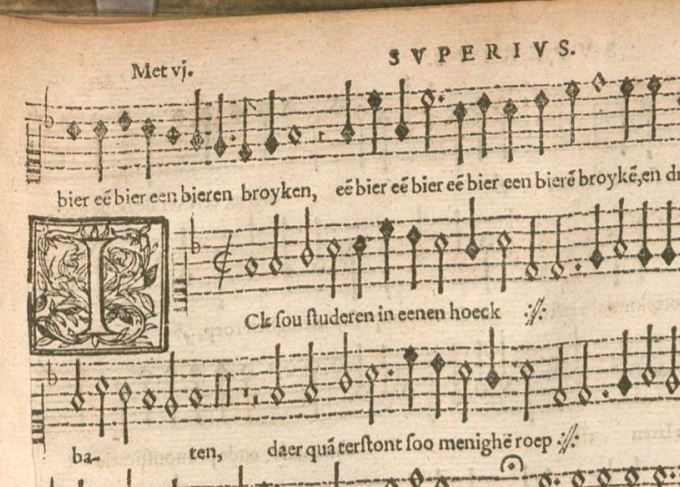 Met vj.
SVPERIVS.
bier eē bier een bieren broyken, eē bier eē bier eē bier een bierē broykē,en dr
I
Ck sou studeren in eenen hoeck :/:
ba- ten, daer quā terstont soo menighē roep :/: